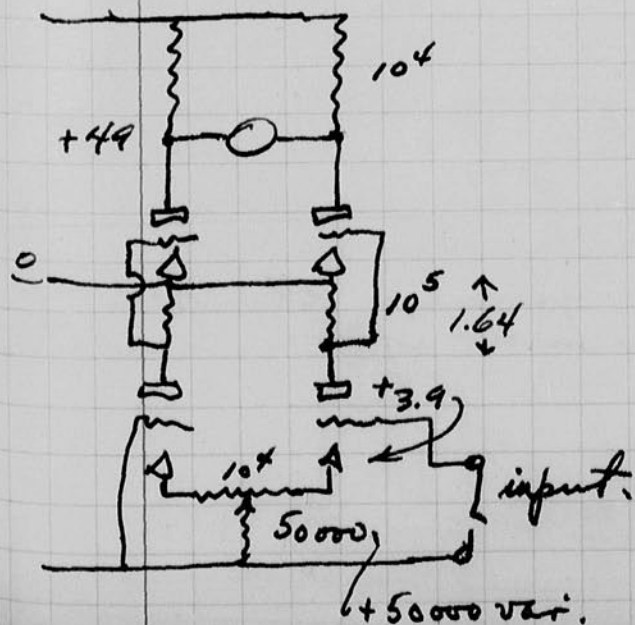 10⁴
+49
0
10⁵
1.64
+3.9
10⁴
input.
50000
+50000 var.